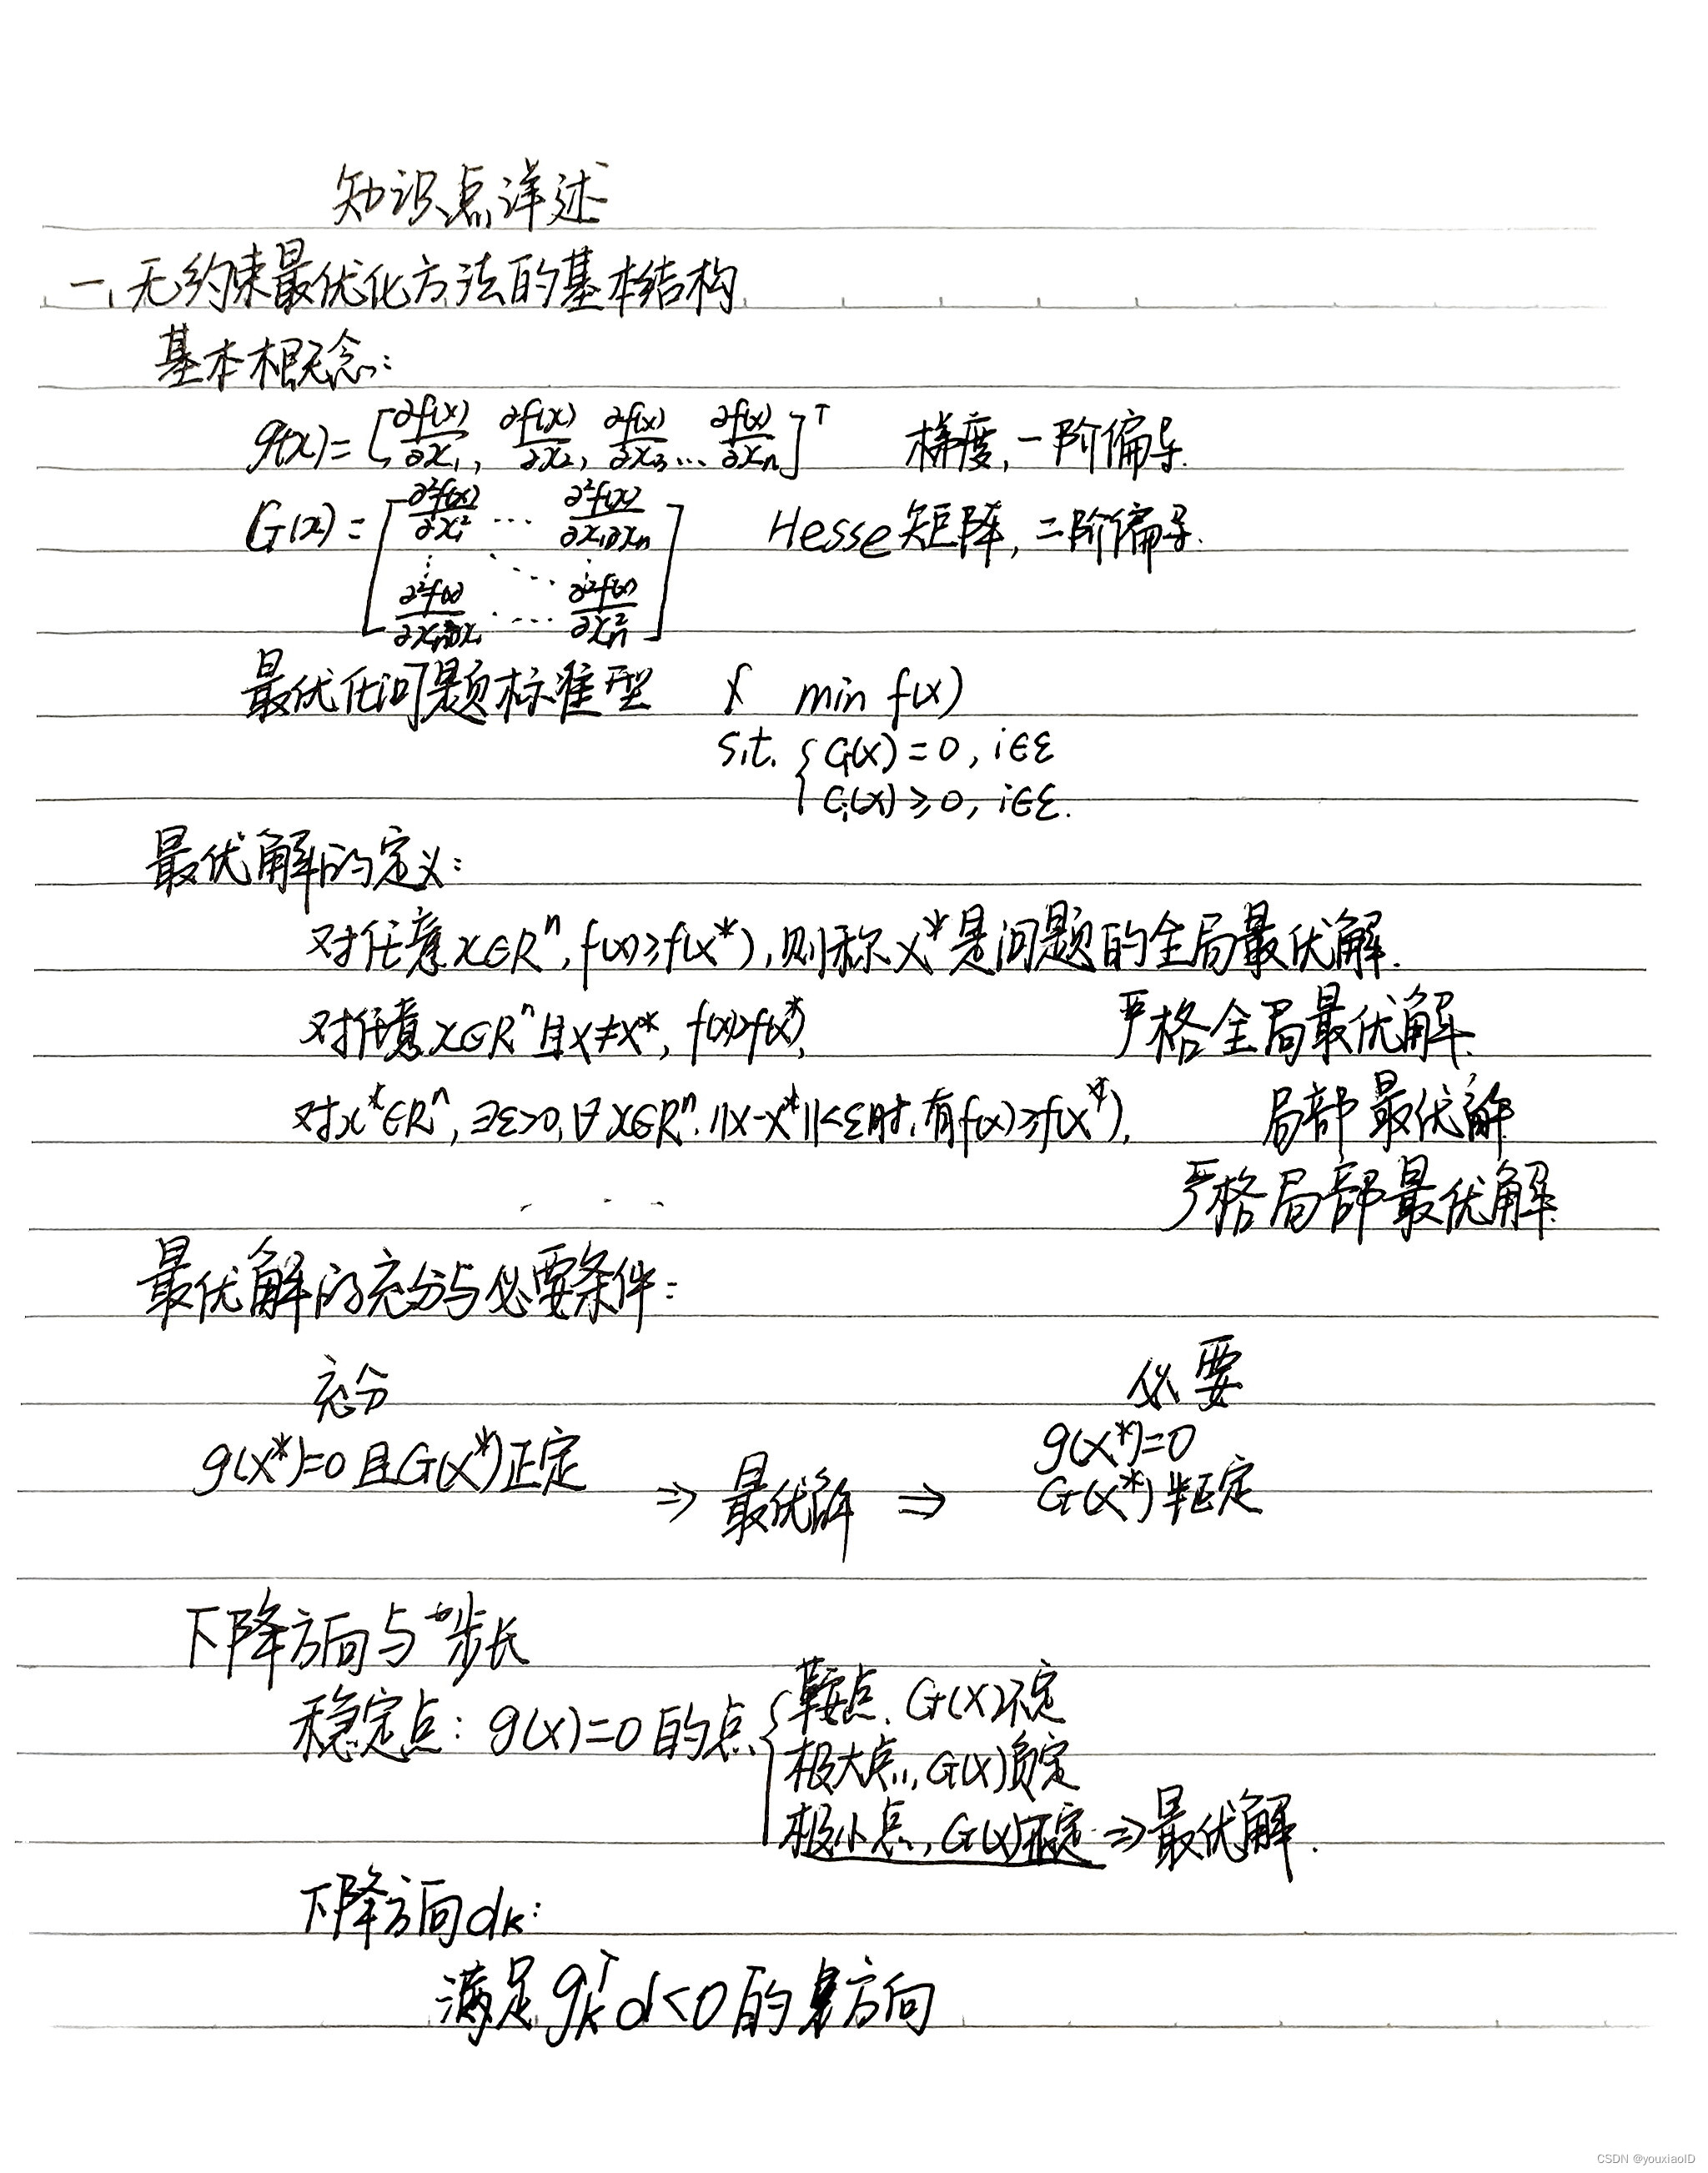 知识点详述
一、无约束最优化方法的基本结构
基本概念:
g(x) = [∂f(x)/∂x₁, ∂f(x)/∂x₂, ∂f(x)/∂x₃ ... ∂f(x)/∂xₙ]ᵀ 梯度,一阶偏导.
G(x) = [∂²f(x)/∂x₁² ... ∂²f(x)/∂x₁∂xₙ Hesse矩阵,二阶偏导.
∂²f(x)/∂xₙ∂x₁ ... ∂²f(x)/∂xₙ²]
最优化问题标准型 min f(x)
s.t. { Cᵢ(x) = 0, i∈ε
Cᵢ(x) ≥ 0, i∈ε.
最优解的定义:
对任意 x∈Rⁿ, f(x)≥f(x*), 则称 x* 是问题的全局最优解.
对任意 x∈Rⁿ 且 x≠x*, f(x)>f(x*), 严格全局最优解.
对x*∈Rⁿ, ∃ε>0, ∀x∈Rⁿ, ||x-x*||<ε时, 有f(x)≥f(x*), 局部最优解
... 严格局部最优解
最优解的充分与必要条件:
充分 必要
g(x*)=0 且 G(x*) 正定 ⇒ 最优解 ⇒ g(x*)=0
G(x*) 半正定
下降方向与步长
稳定点: g(x)=0 的点 { 鞍点, G(x)不定
极大点, G(x)负定
极小点, G(x)正定 ⇒ 最优解.
下降方向dₖ:
满足 gₖᵀd<0 的方向
CSDN @youxiaoID